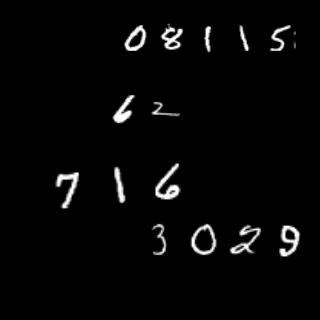 08115
62
716
3029